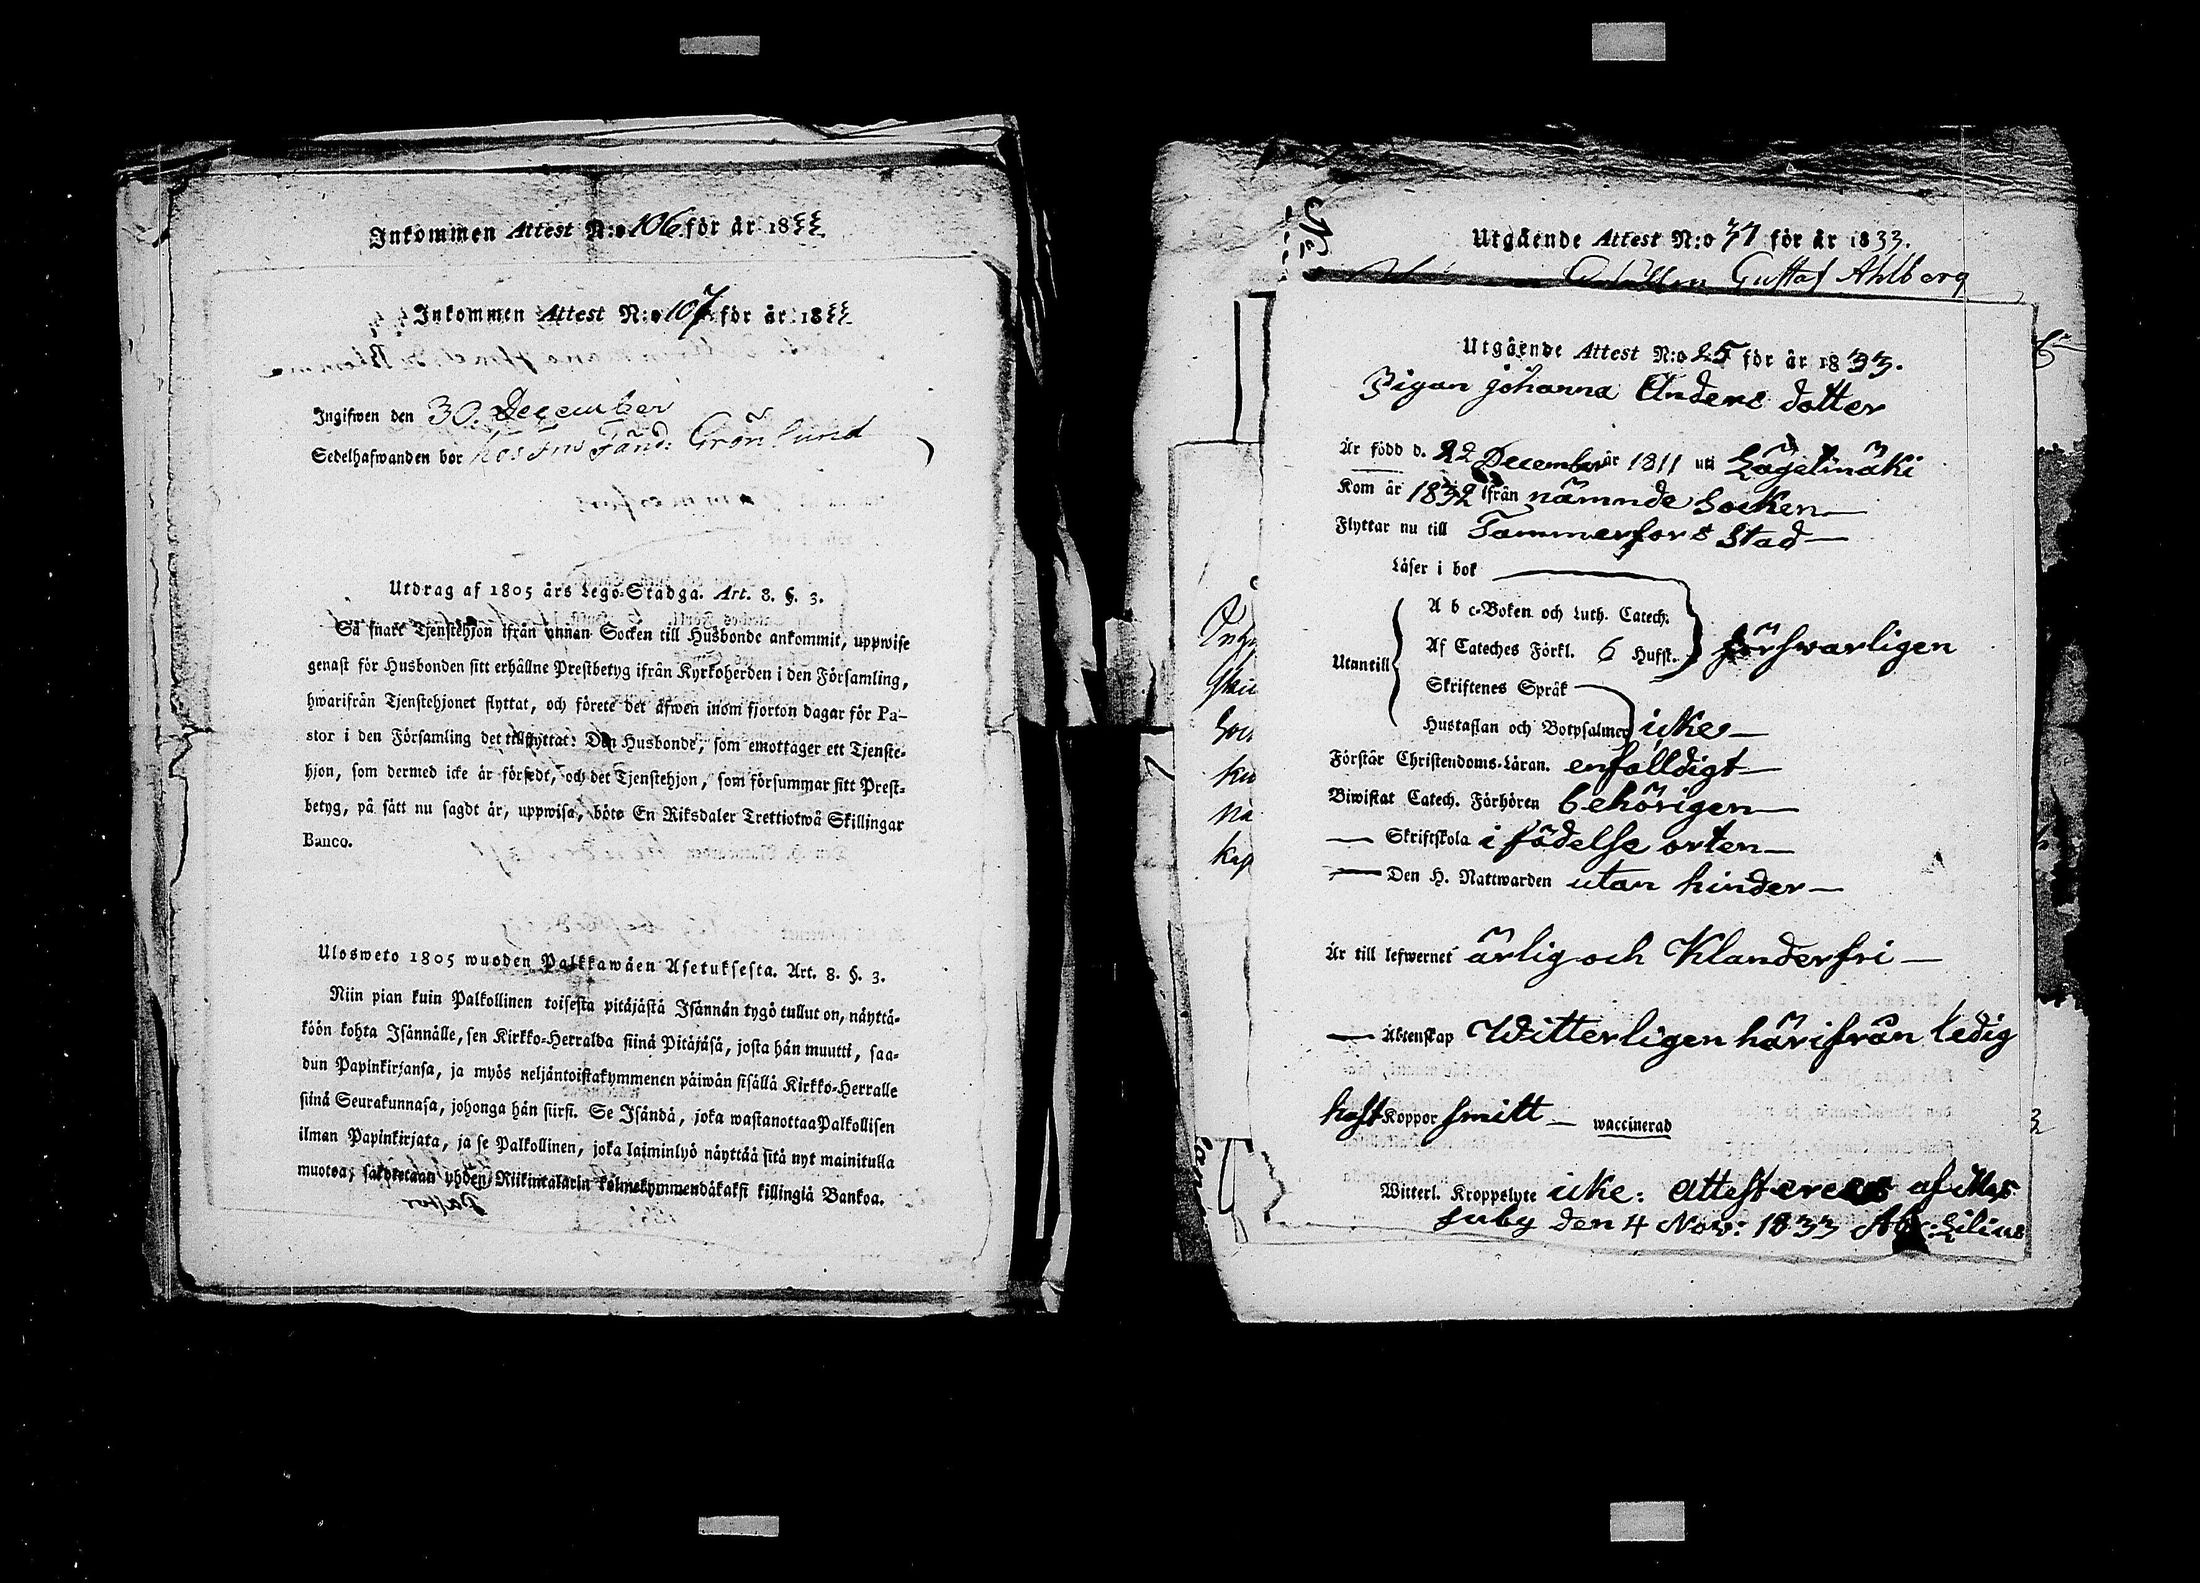 Inkommen Attest N:o 106 för år 1833
Inkommen Attest N:o 107 för år 1833
Ingifwen den 30. December
Sedelhafwanden bor hos Grönlund
Utdrag af 1805 års Lego-Stadga. Art. 8. §. 3.
Så snart Tjenstehjon ifrån annan Socken till Husbonde ankommit, uppwise
genast för Husbonden sitt erhållne Prestbetyg ifrån Kyrkoherden i den Församling,
hwarifrån Tjenstehjonet flyttat, och förete det äfwen inom fjorton dagar för Pa-
stor i den Församling det tillflyttat: Den Husbonde, som emottager ett Tjenste-
hjon, som dermed icke är försedt, och det Tjenstehjon, som försummar sitt Prest-
betyg, på sätt nu sagdt är, uppwisa, böte En Riksdaler Trettiotwå Skillingar
Banco.
Ulosweto 1805 wuoden Palkkawäen Asetuksesta. Art. 8. §. 3.
Niin pian kuin Palkollinen toisesta pitäjästä Isännän tygö tullut on, näyttä-
köön kohta Isännälle, sen Kirkko-Herralda siinä Pitäjäsä, josta hän muutti, saa-
dun Papinkirjansa, ja myös neljäntoistakymmenen päiwän sisällä Kirkko-Herralle
siinä Seurakunnasa, johonga hän siirsi. Se Isändä, joka wastanottaa Palkollisen
ilman Papinkirjata, ja se Palkollinen, joka laiminlyö näyttää sitä nyt mainitulla
muotoa, sakotetaan yhden Riikintalarin kolmekymmendäkaksi killingiä Bankoa.
Utgående Attest N:o 37 för år 1833.
Gustaf Ahlberg
Utgående Attest N:o 25 för år 1833.
Pigan Johanna Anders dotter
Är född d. 22 December år 1811 uti Längelmäki
Kom år 1832 ifrån nämnde Socken
Flyttar nu till Tammerfors Stad
Läser i bok
A b c-Boken och Luth. Catech.
Utantill Af Cateches Förkl. 6 Hufst. försvarligen
Skriftenes Språk
Hustaflan och Botpsalmer icke
Förstår Christendoms-Läran. enfalldigt
Biwistat Catech. Förhören behörigen
Skriftskola i födelse orten
Den H. Nattwarden utan hinder
Är till lefwernet ärlig och Klanderfri
Äktenskap Witterligen härifrån ledig
haft Koppor smitt waccinerad
Witterl. Kroppslyte icke: attesteres af Mes
suby den 4 Nov: 1833 Abr: Lilius